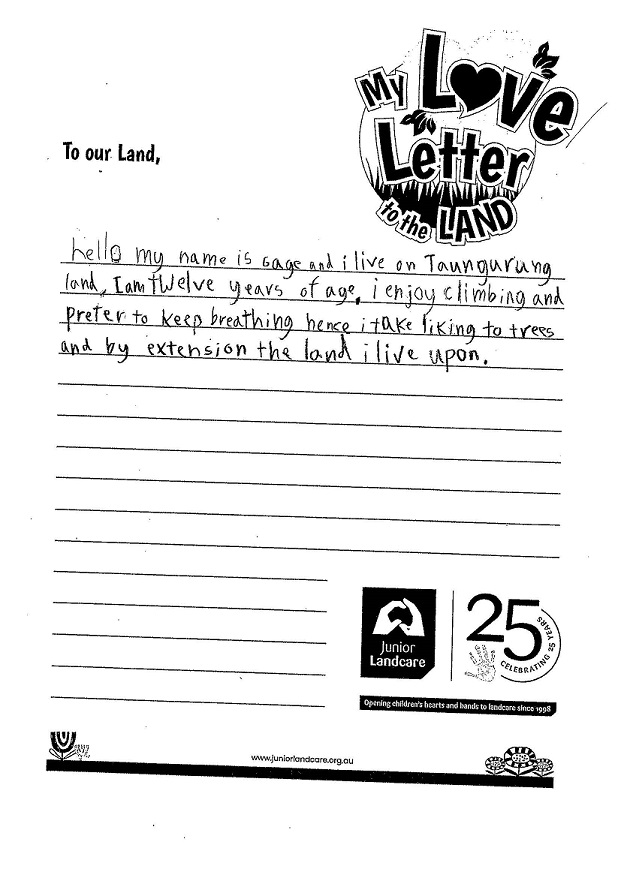 My Love
Letter
to the LAND
To our Land,
hello my name is Gage and i live on Taungurung
land, I am twelve years of age, i enjoy climbing and
prefer to keep breathing hence i take liking to trees
and by extension the land i live upon.
Junior
Landcare
25
CELEBRATING 25 YEARS
Opening children's hearts and hands to landcare since 1998
www.juniorlandcare.org.au